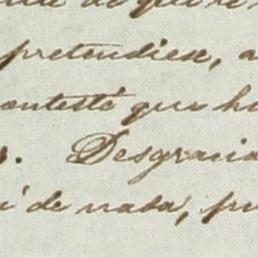 de que
pretendiese, a
contestó que h
Desgracia
i de nada, pu